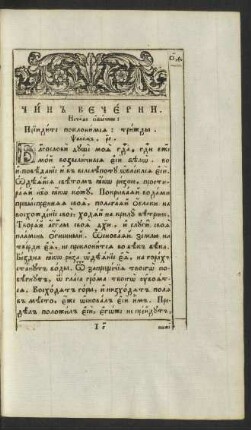 ЧИ́НЪ ВЕЧЕ́РНИ.
Нача́ло ѡбы́чное:
Прїиди́те поклони́мсѧ: три́жды.
Ѱало́мъ, рг҃.
Благослови̂ дꙋшѐ моѧ̀ гдⷭ҇а, гдⷭ҇и бж҃е
мо́й возвели́чилсѧ є҆сѝ ѕѣлѡ̀: во
и҆сповѣ́данїе и҆ в велелѣ́потꙋ ѡ҆блече́сѧ є҆сѝ.
Ѡ҆дѣ́ѧйсѧ свѣ́томъ ꙗ҆́кѡ ри́зою, прости-
ра́ѧй нб҃о ꙗ҆́кѡ ко́жꙋ. Покрыва́ѧй вода́ми
превы́спренѧѧ своѧ̀, полага́ѧй ѡ҆́блаки на
восхожде́нїе своѐ: ходѧ́й на крилꙋ̀ вѣ́трєню.
Творѧ́й а҆́гг҃лы своѧ̀ дх҃и, и҆ слꙋги̂ своѧ̀
пла́мень ѻ҆́гненный. Ѡ҆снова́ѧй зе́млю на
тве́рди є҆ѧ̀, не преклони́тсѧ во вѣ́къ вѣ́ка.
Бе́здна ꙗ҆́кѡ ри́за ѡ҆дѣѧ́нїе є҆ѧ̀, на гора́хъ
ста́нꙋтъ во́ды. Ѿ запреще́нїѧ твоегѡ̀ по-
бѣ́гнꙋтъ, ѿ гла́са гро́ма твоегѡ̀ ᲂу҆боѧ́т-
сѧ. Восхо́дѧтъ го́ры, и҆ низхо́дѧтъ полѧ̀
в мѣ́сто, є҆́же ѡ҆снова́лъ є҆сѝ и҆̀мъ. Пре-
дѣ́лъ положи́лъ є҆сѝ, є҆гѡ́же не пре́йдꙋтъ,